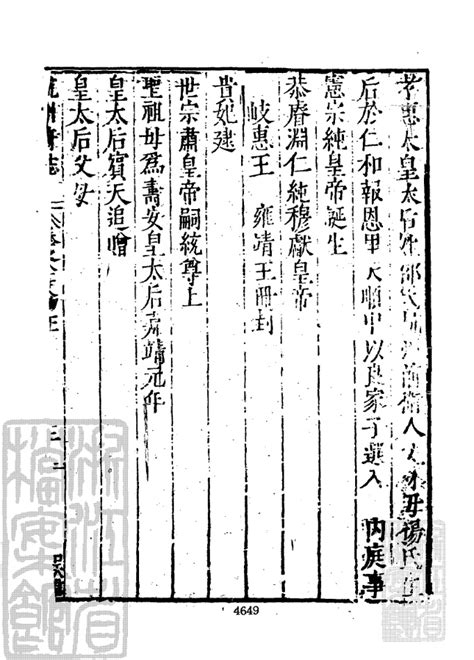 孝惠太皇太后姓邵氏杭州前衛人父林母楊氏生
后於仁和報恩里天順中以良家子選入 內庭事
憲宗純皇帝誕生
恭睿淵仁純穆獻皇帝
岐惠王 雍靖王冊封
貴妃逮
世宗肅皇帝嗣統尊上
聖祖母為壽安皇太后嘉靖元年
皇太后賓天追贈
皇太后父母
杭州府志
三
4649
浙江省檔案館